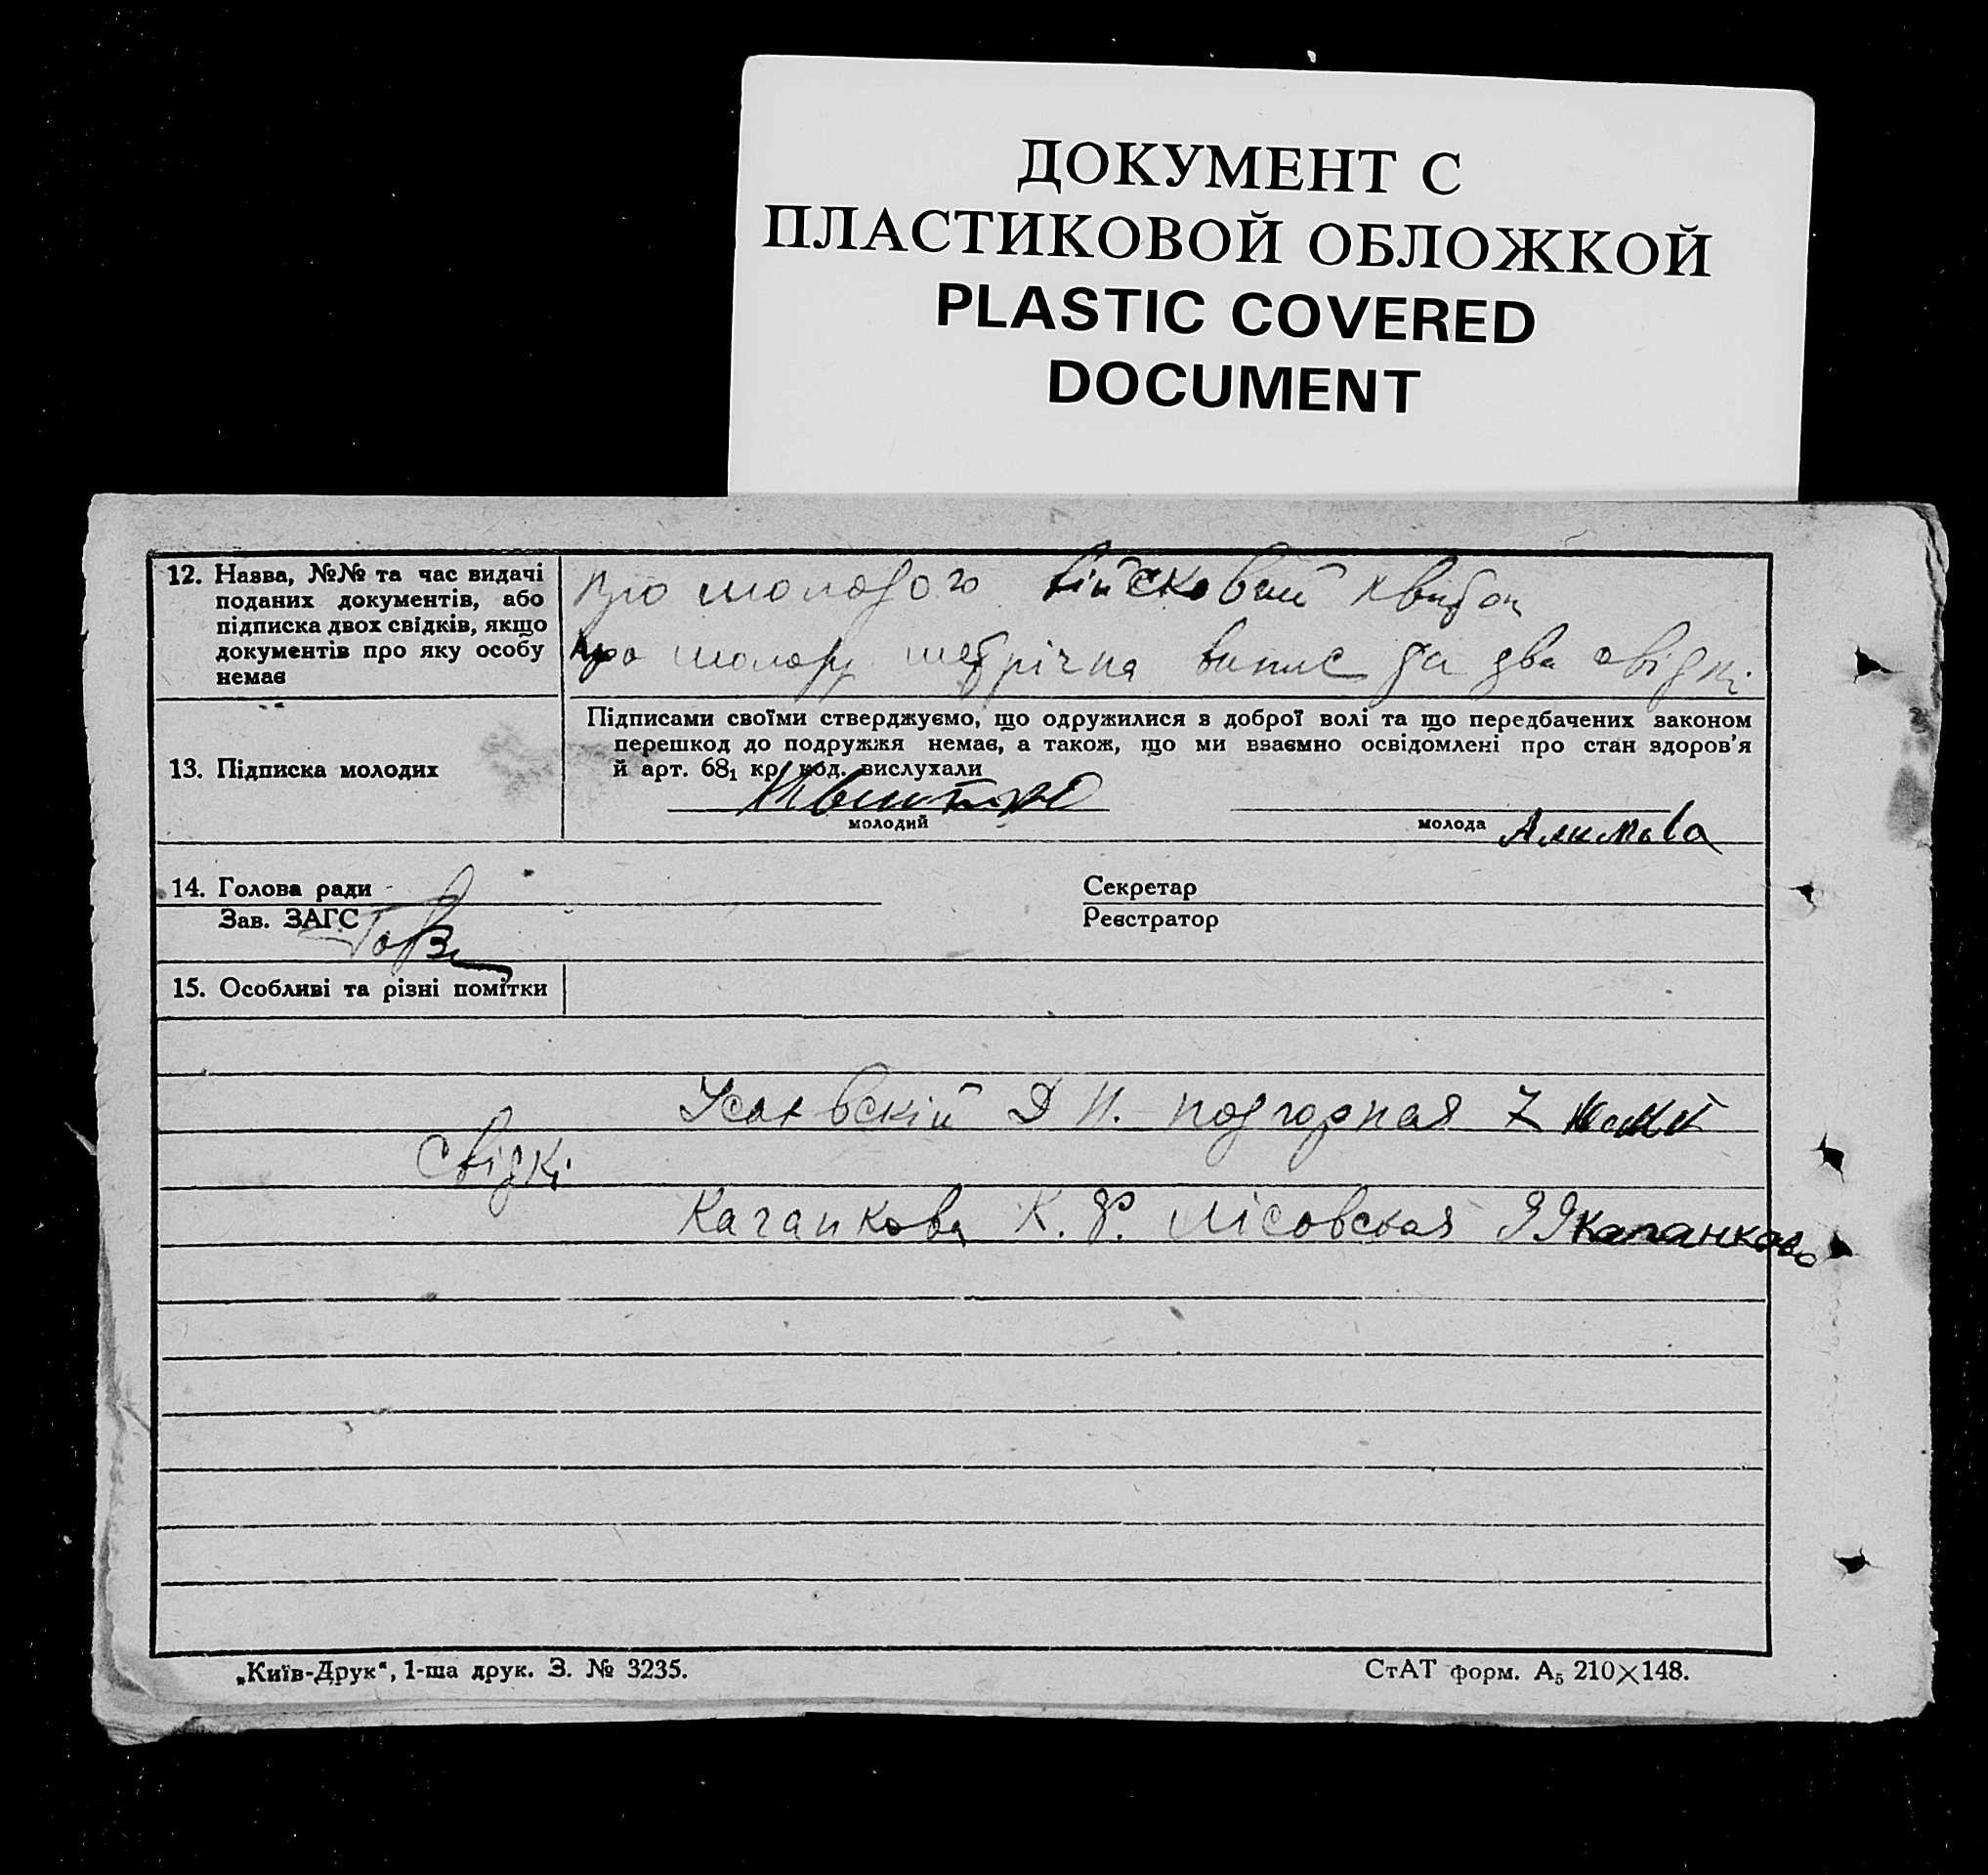 ДОКУМЕНТ С
ПЛАСТИКОВОЙ ОБЛОЖКОЙ
PLASTIC COVERED
DOCUMENT
12. Назва, №№ та час видачі
поданих документів, або
підписка двох свідків, якщо
документів про яку особу
немає
Про молодого військовий квиток
про молоду метрічна випис да два свідкі
13. Підписка молодих
Підписами своїми стверджуємо, що одружилися з доброї волі та що передбачених законом
перешкод до подружжя немає, а також, що ми взаємно освідомлені про стан здоров'я
й арт. 68₁ кр. код. вислухали
молодий
молода Алимова
14. Голова ради
Секретар
Зав. ЗАГС
Реєстратор
15. Особливі та різні помітки
Усаевскій Д И. подгорная 7
Свідкі
Каганкова К. Ф. Лісовская Каганкова
„Київ-Друк“, 1-ша друк. З. № 3235.
СтАТ форм. А₅ 210×148.